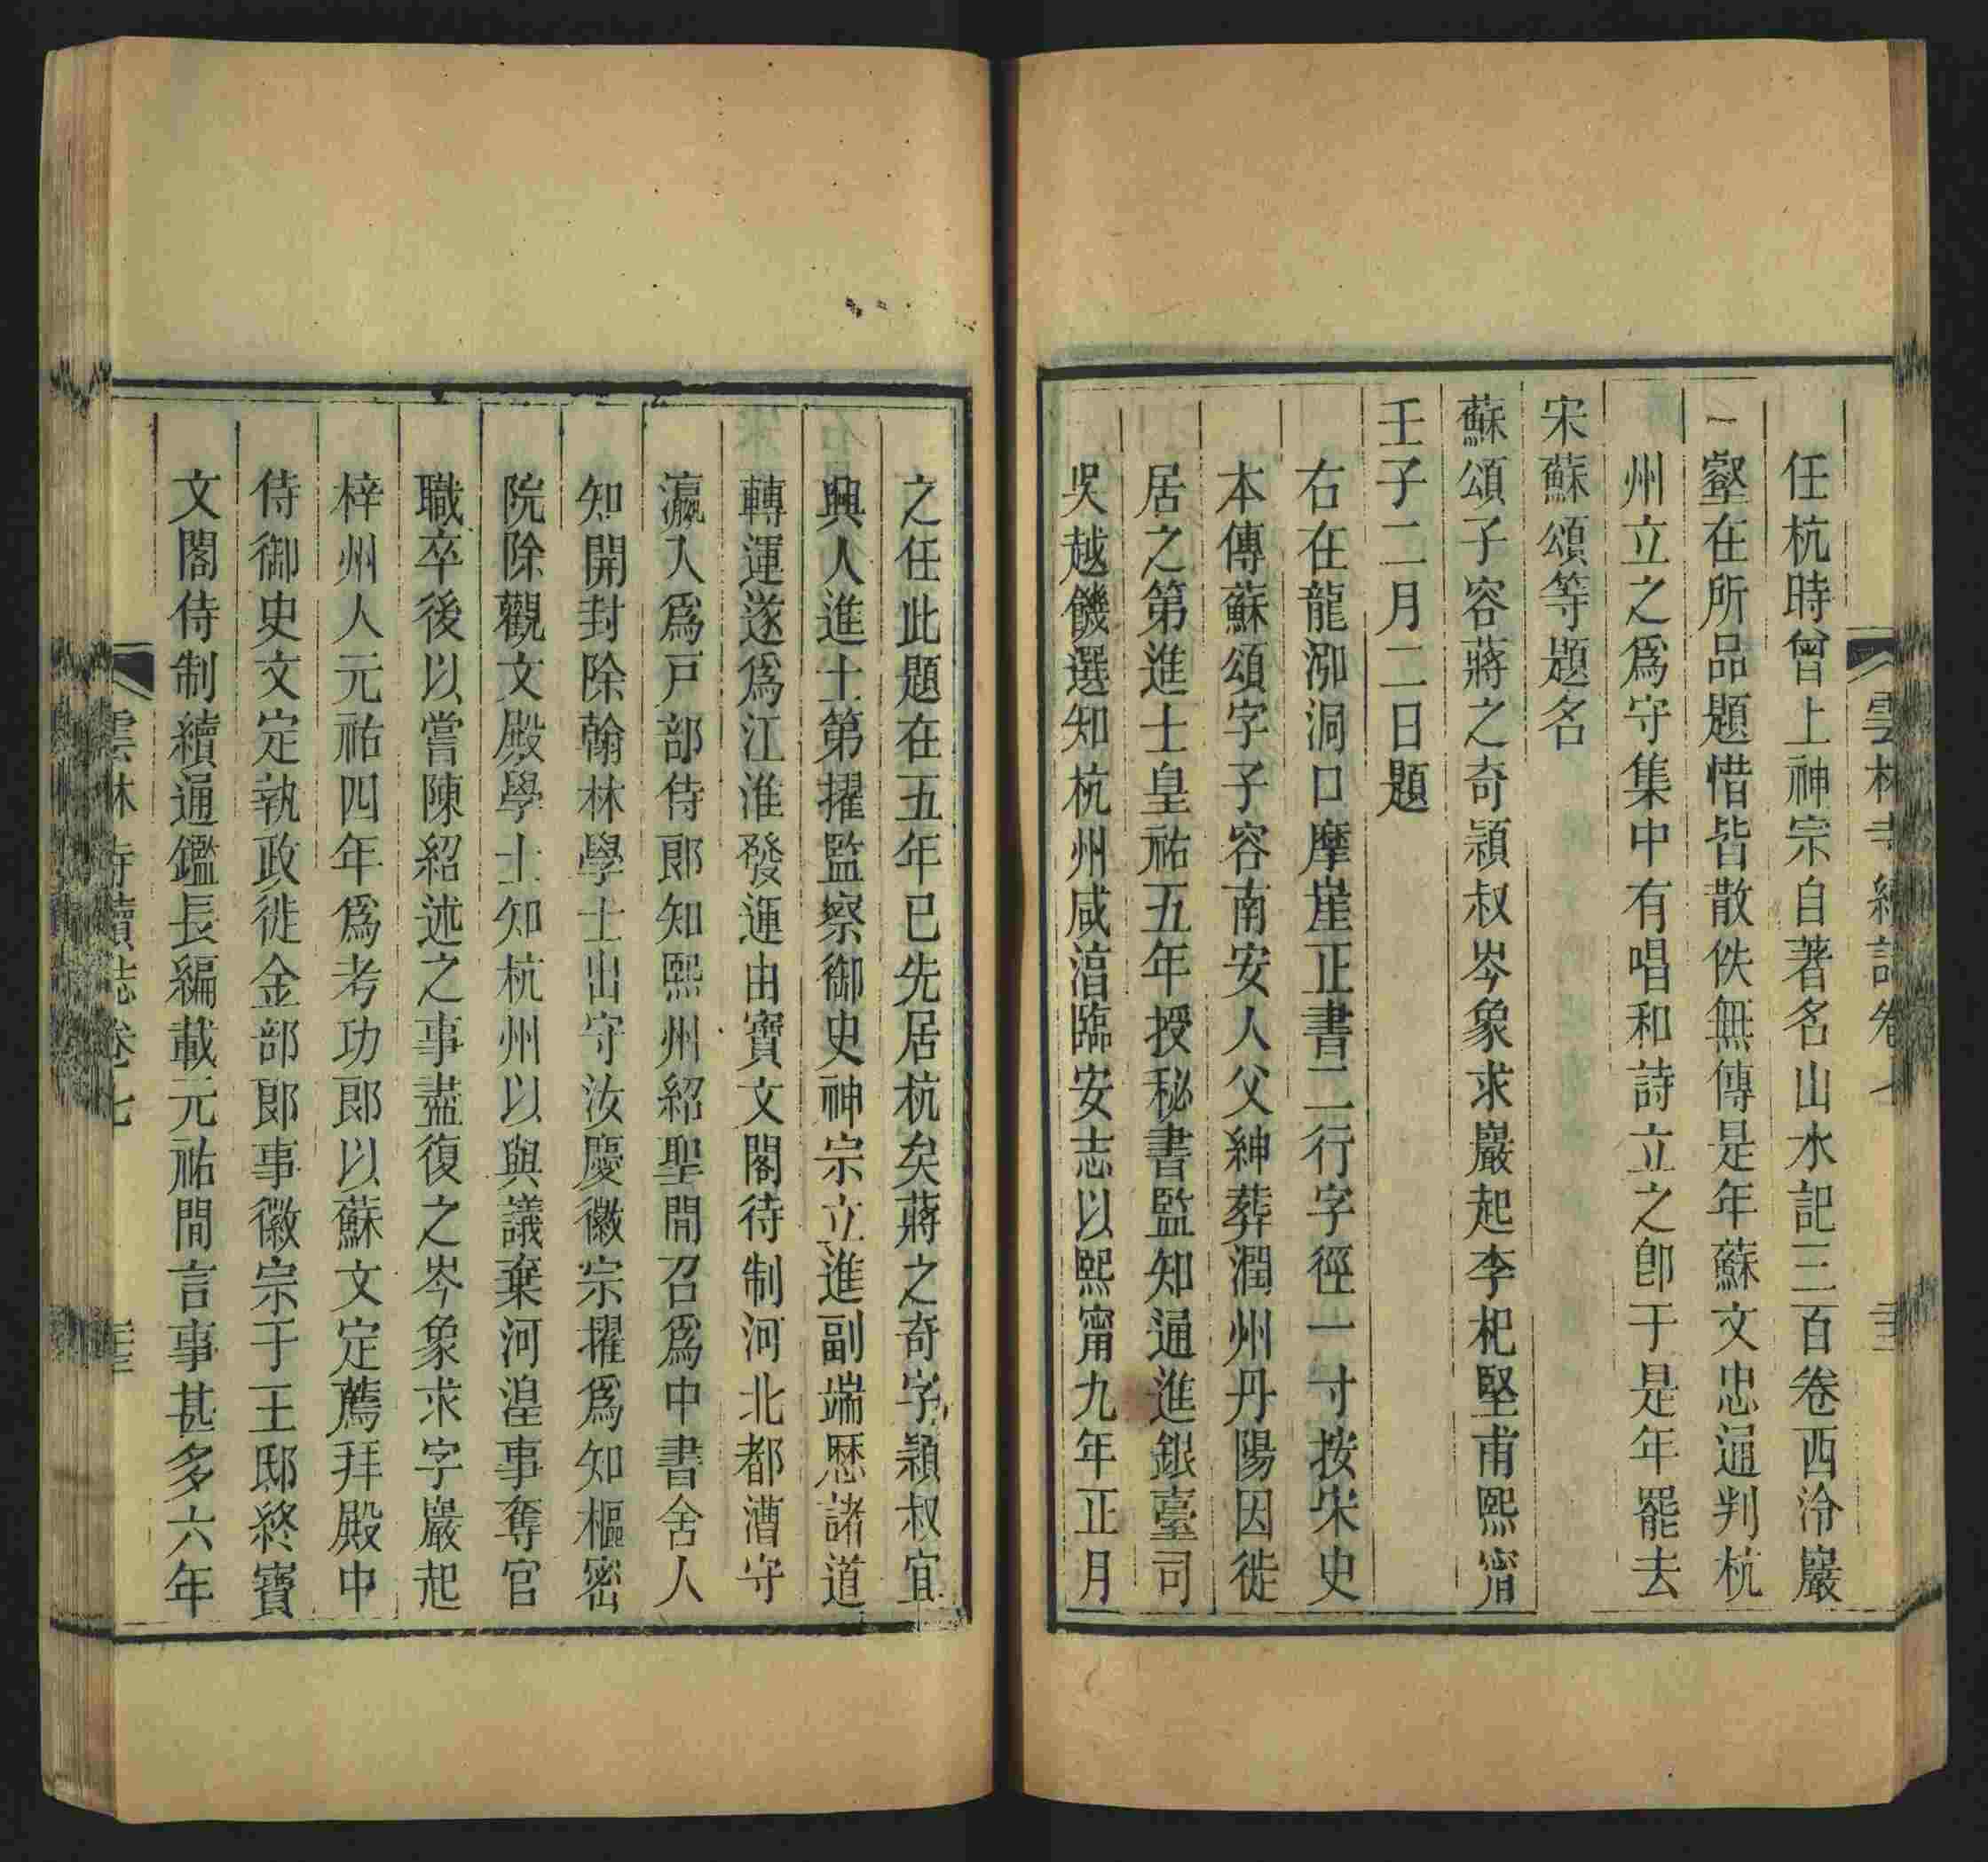 任杭時曾上神宗自著名山水記三百卷西泠巖
一壑在所品題惜皆散佚無傳是年蘇文忠通判杭
州立之爲守集中有唱和詩立之卽于是年罷去
宋蘇頌等題名
蘇頌子容蔣之奇穎叔岑象求巖起李杞堅甫熙甯
壬子二月二日題
右在龍泖洞口摩崖正書二行字徑一寸按宋史
本傳蘇頌字子容南安人父紳葬潤州丹陽因徙
居之第進士皇祐五年授秘書監知通進銀臺司
吳越饑選知杭州咸淳臨安志以熙甯九年正月
之任此題在五年已先居杭矣蔣之奇字穎叔宜
興人進士第擢監察御史神宗立進副端歷諸道
轉運遂爲江淮發運由寶文閣待制河北都漕守
瀛入爲戸部侍郎知熙州紹聖間召爲中書舍人
知開封除翰林學士出守汝慶徽宗擢爲知樞密
院除觀文殿學士知杭州以與議棄河湟事奪官
職卒後以嘗陳紹述之事盡復之岑象求字巖起
梓州人元祐四年爲考功郎以蘇文定薦拜殿中
侍御史文定執政徙金部郎事徽宗于王邸終寶
文閣侍制續通鑑長編載元祐間言事甚多六年
雲林寺續誌卷七